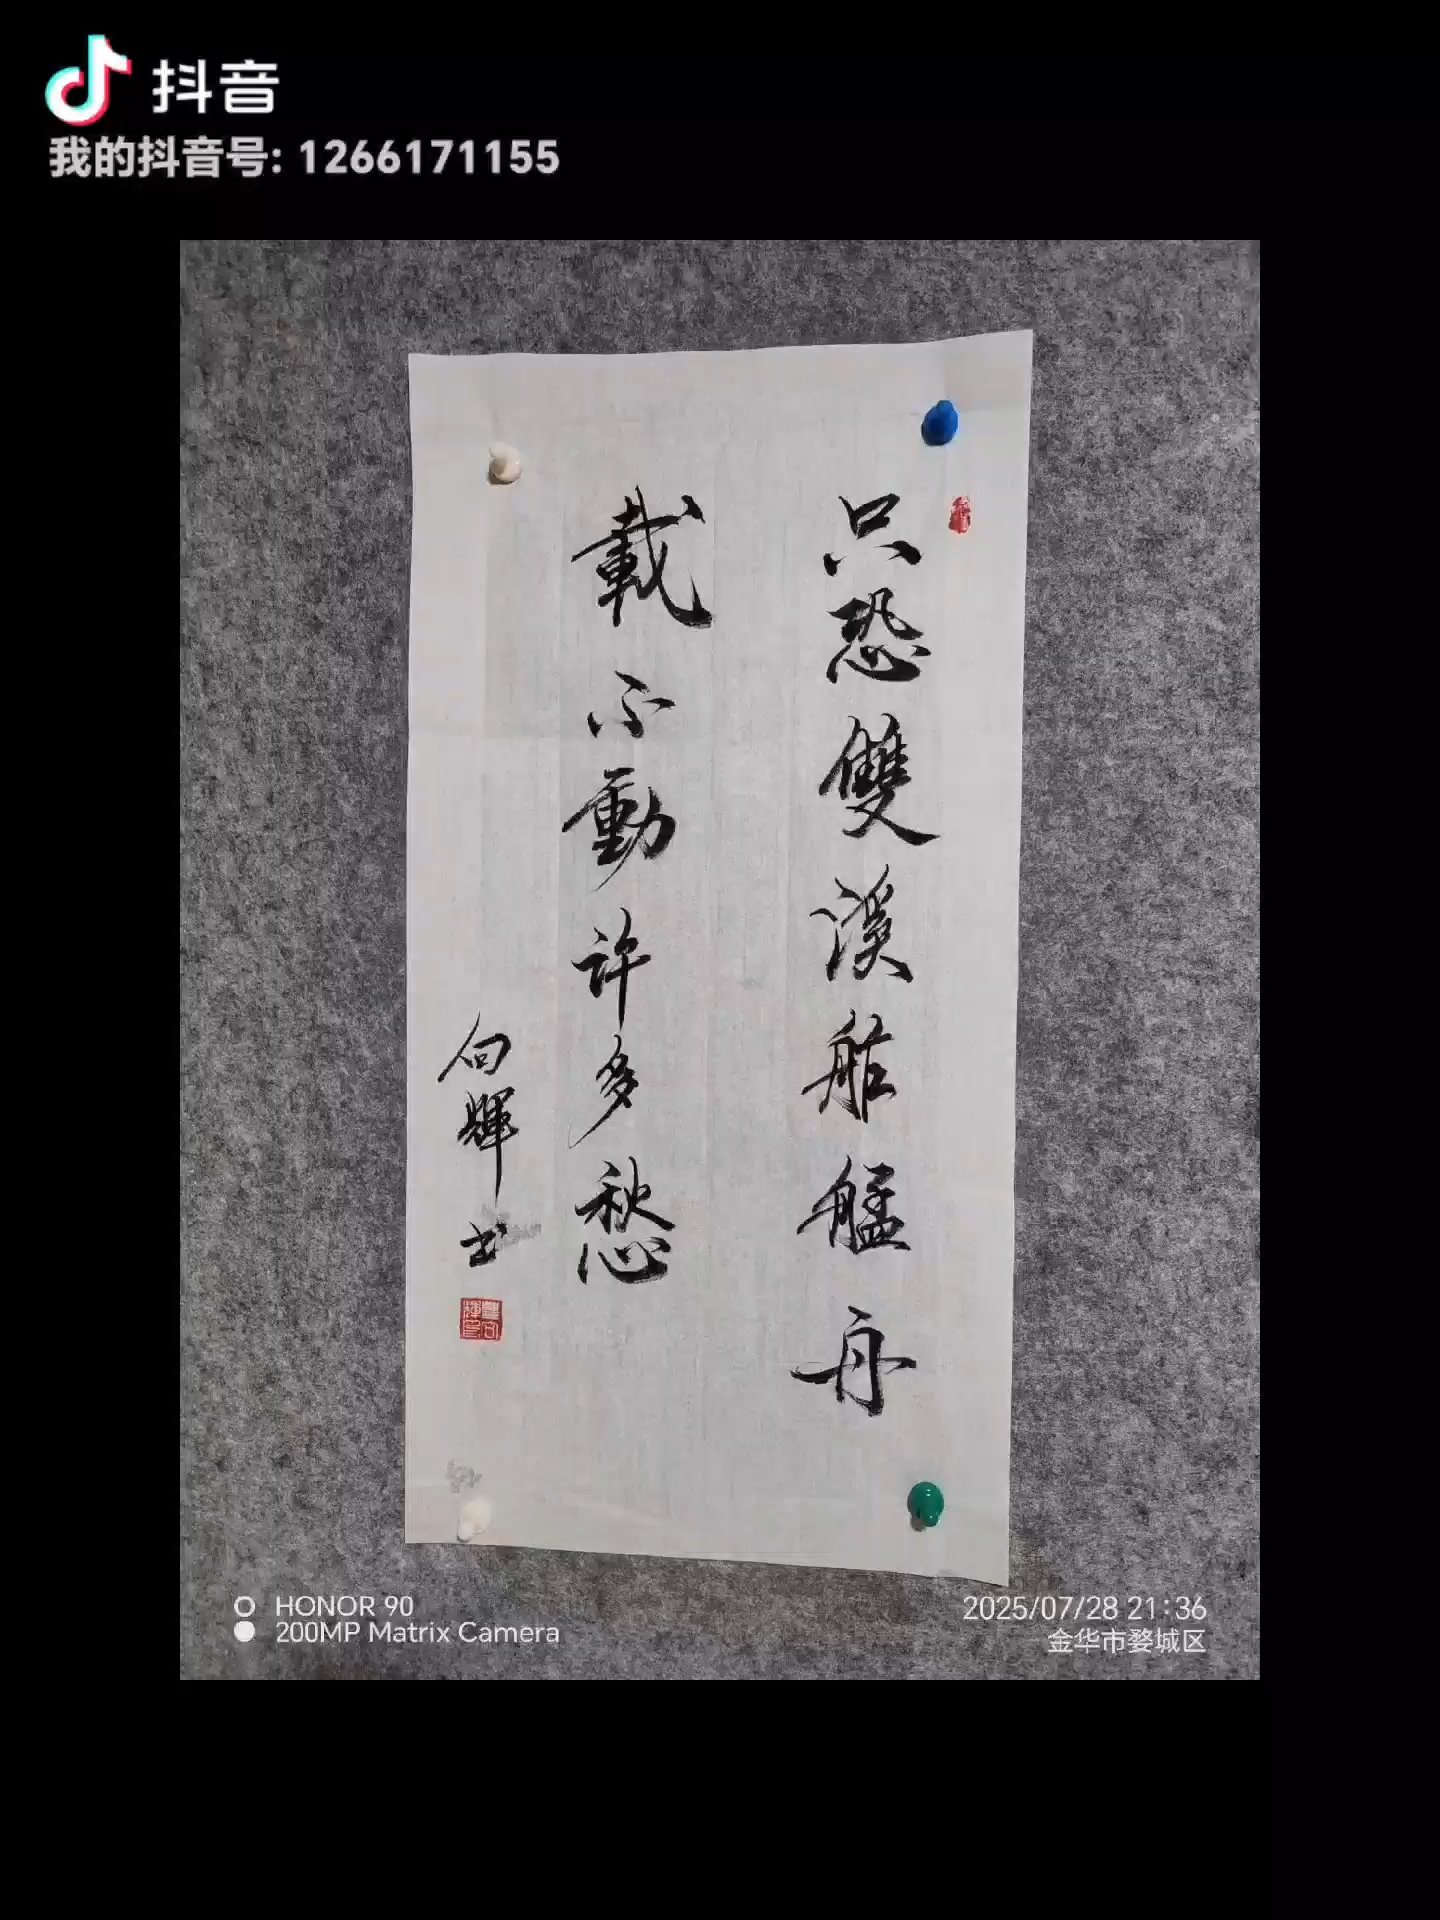 抖音
我的抖音号: 1266171155
只恐雙溪舴艋舟
載不動許多愁
向輝书
HONOR 90
200MP Matrix Camera
2025/07/28 21:36
金华市婺城区